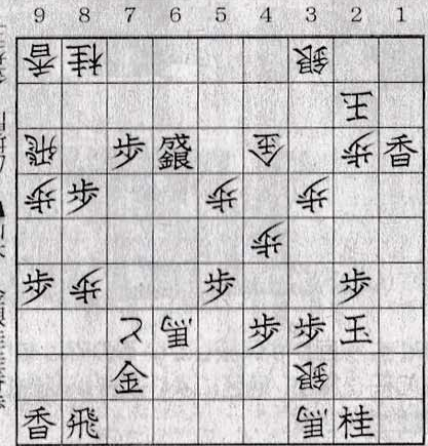 9 8 7 6 5 4 3 2 1
香 桂 銀
王
飛 歩 成銀 金 歩 香
歩 歩 歩 歩
歩
歩 歩 歩 歩
と 馬 歩 歩 玉
金 銀
香 飛 馬 桂